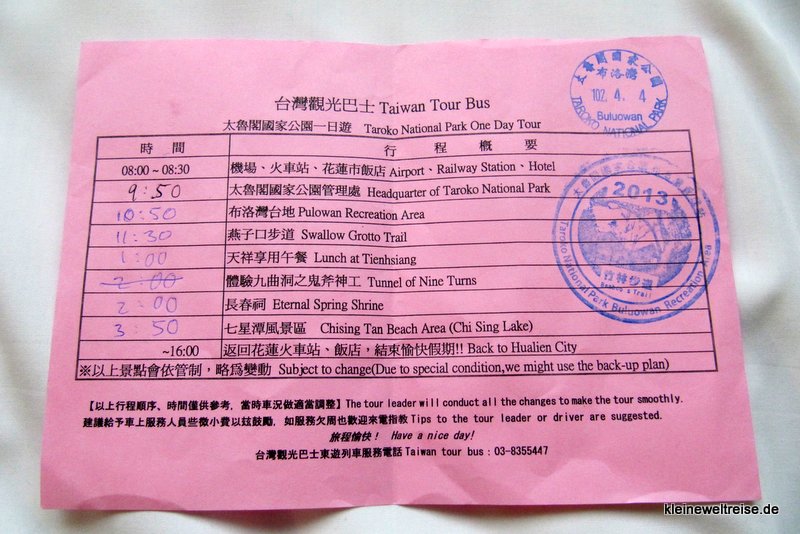 台灣觀光巴士 Taiwan Tour Bus
太魯閣國家公園一日遊 Taroko National Park One Day Tour
時間 行程概要
08:00 ~ 08:30 機場、火車站、花蓮市飯店 Airport、Railway Station、Hotel
9:50 太魯閣國家公園管理處 Headquarter of Taroko National Park
10:50 布洛灣台地 Pulowan Recreation Area
11:30 燕子口步道 Swallow Grotto Trail
1:00 天祥享用午餐 Lunch at Tienhsiang
2:00 體驗九曲洞之鬼斧神工 Tunnel of Nine Turns
2:00 長春祠 Eternal Spring Shrine
3:50 七星潭風景區 Chising Tan Beach Area (Chi Sing Lake)
~16:00 返回花蓮火車站、飯店，結束愉快假期!! Back to Hualien City
※以上景點會依管制，略為變動 Subject to change(Due to special condition,we might use the back-up plan)
【以上行程順序、時間僅供參考，當時車況做適當調整】The tour leader will conduct all the changes to make the tour smoothly.
建議給予車上服務人員些微小費以玆鼓勵，如服務欠周也歡迎來電指教 Tips to the tour leader or driver are suggested.
旅程愉快！ Have a nice day!
台灣觀光巴士東遊列車服務電話 Taiwan tour bus : 03-8355447
太魯閣國家公園
布洛灣
102. 4. 4
Buluowan
TAROKO NATIONAL PARK
2013
竹林步道
Bamboo Trail
Taroko National Park Buluowan Recreation Area
kleineweltreise.de